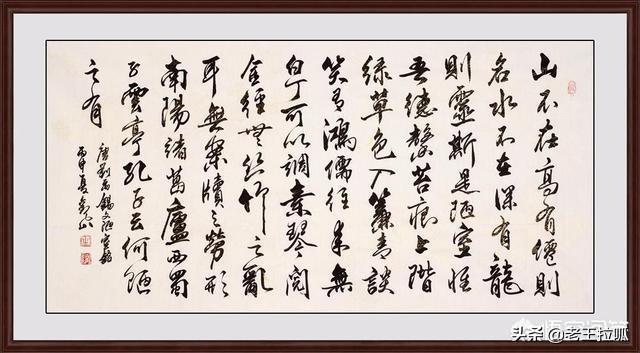 山不在高有僊則
名水不在深有龍
則靈斯是陋室惟
吾德馨苔痕上階
綠草色入簾青談
笑有鴻儒往来無
白丁可以調素琴閱
金經無丝竹之亂
耳無案牘之勞形
南陽諸葛廬西蜀
子雲亭孔子云何陋
之有
唐劉禹錫文陋室銘
丙申夏
悟空问答
头条@老王拉呱